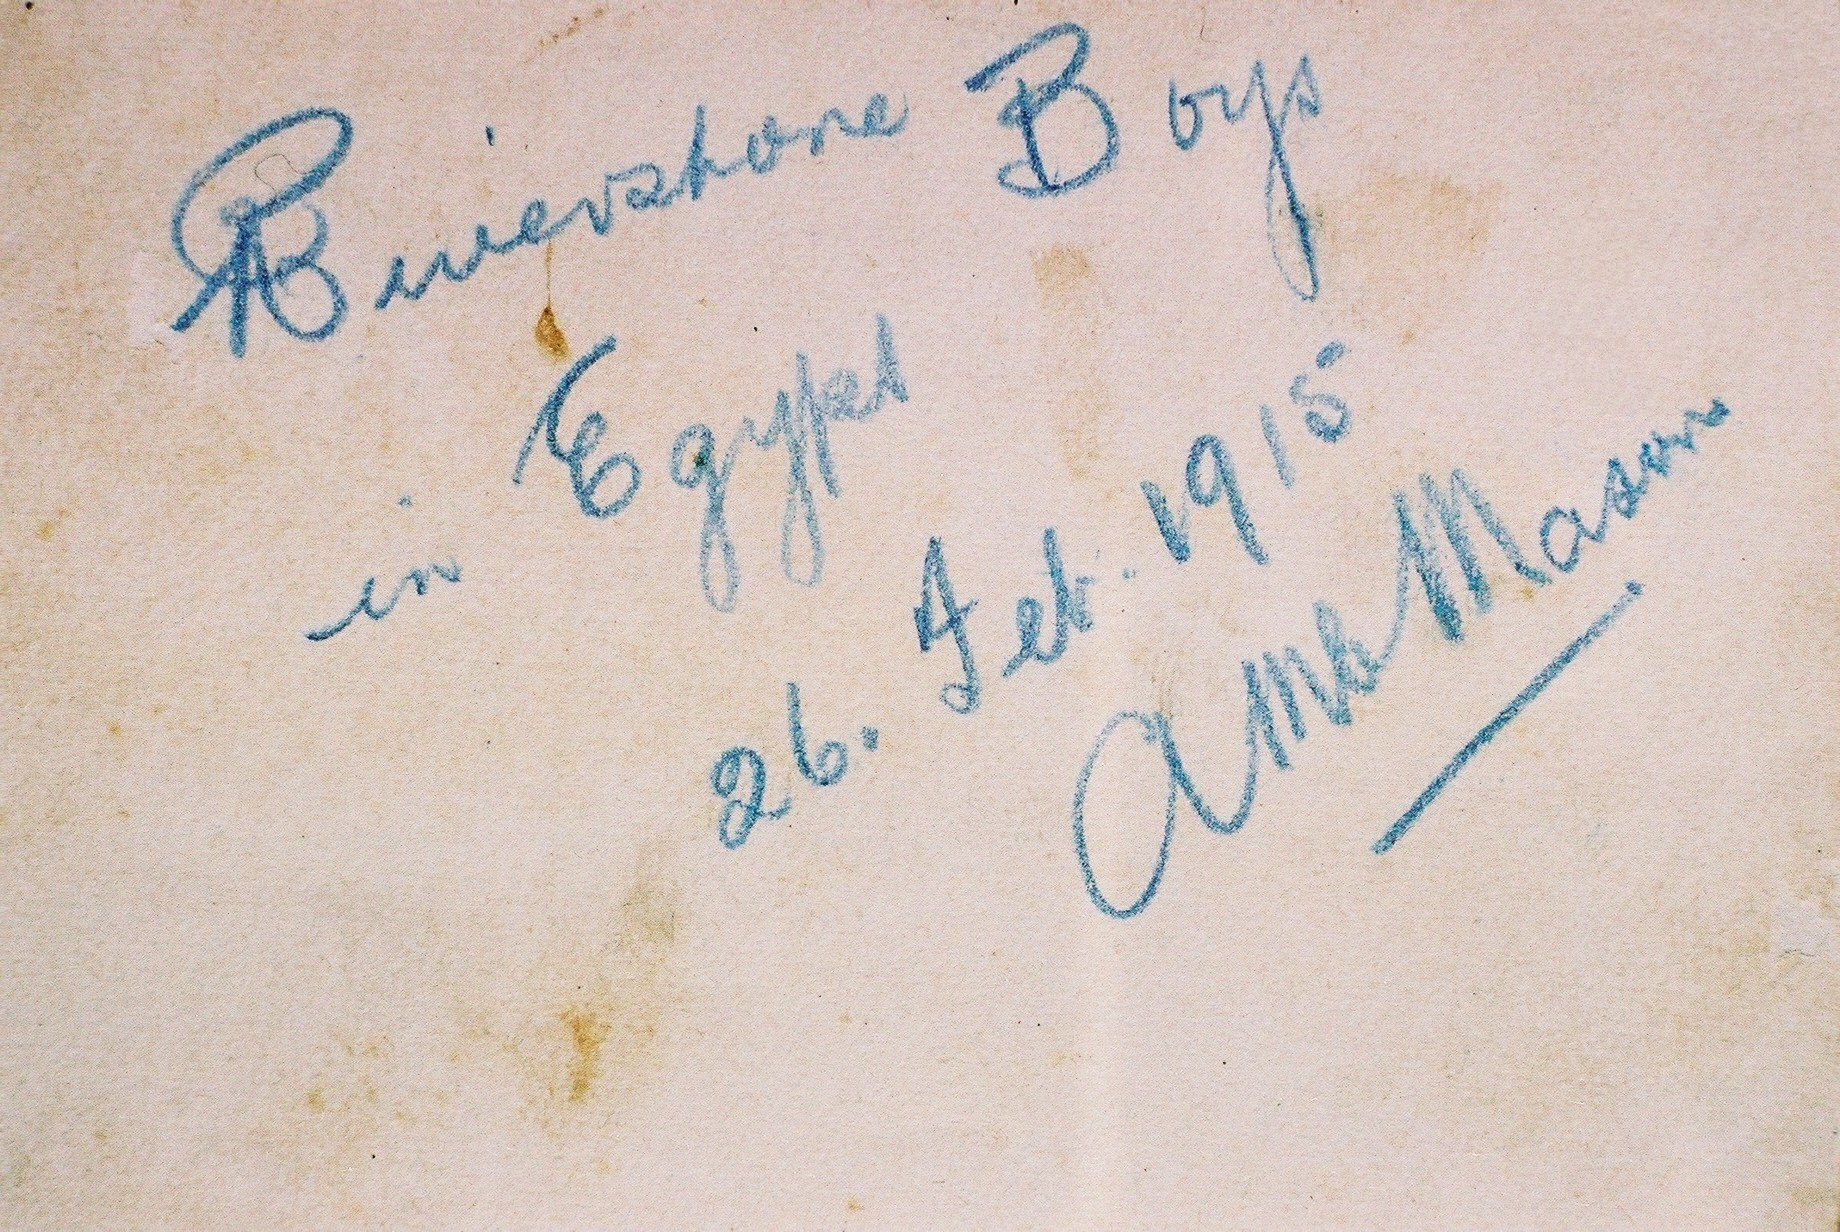 Riverstone Boys
in Egypt
26. Feb. 1915
Mason